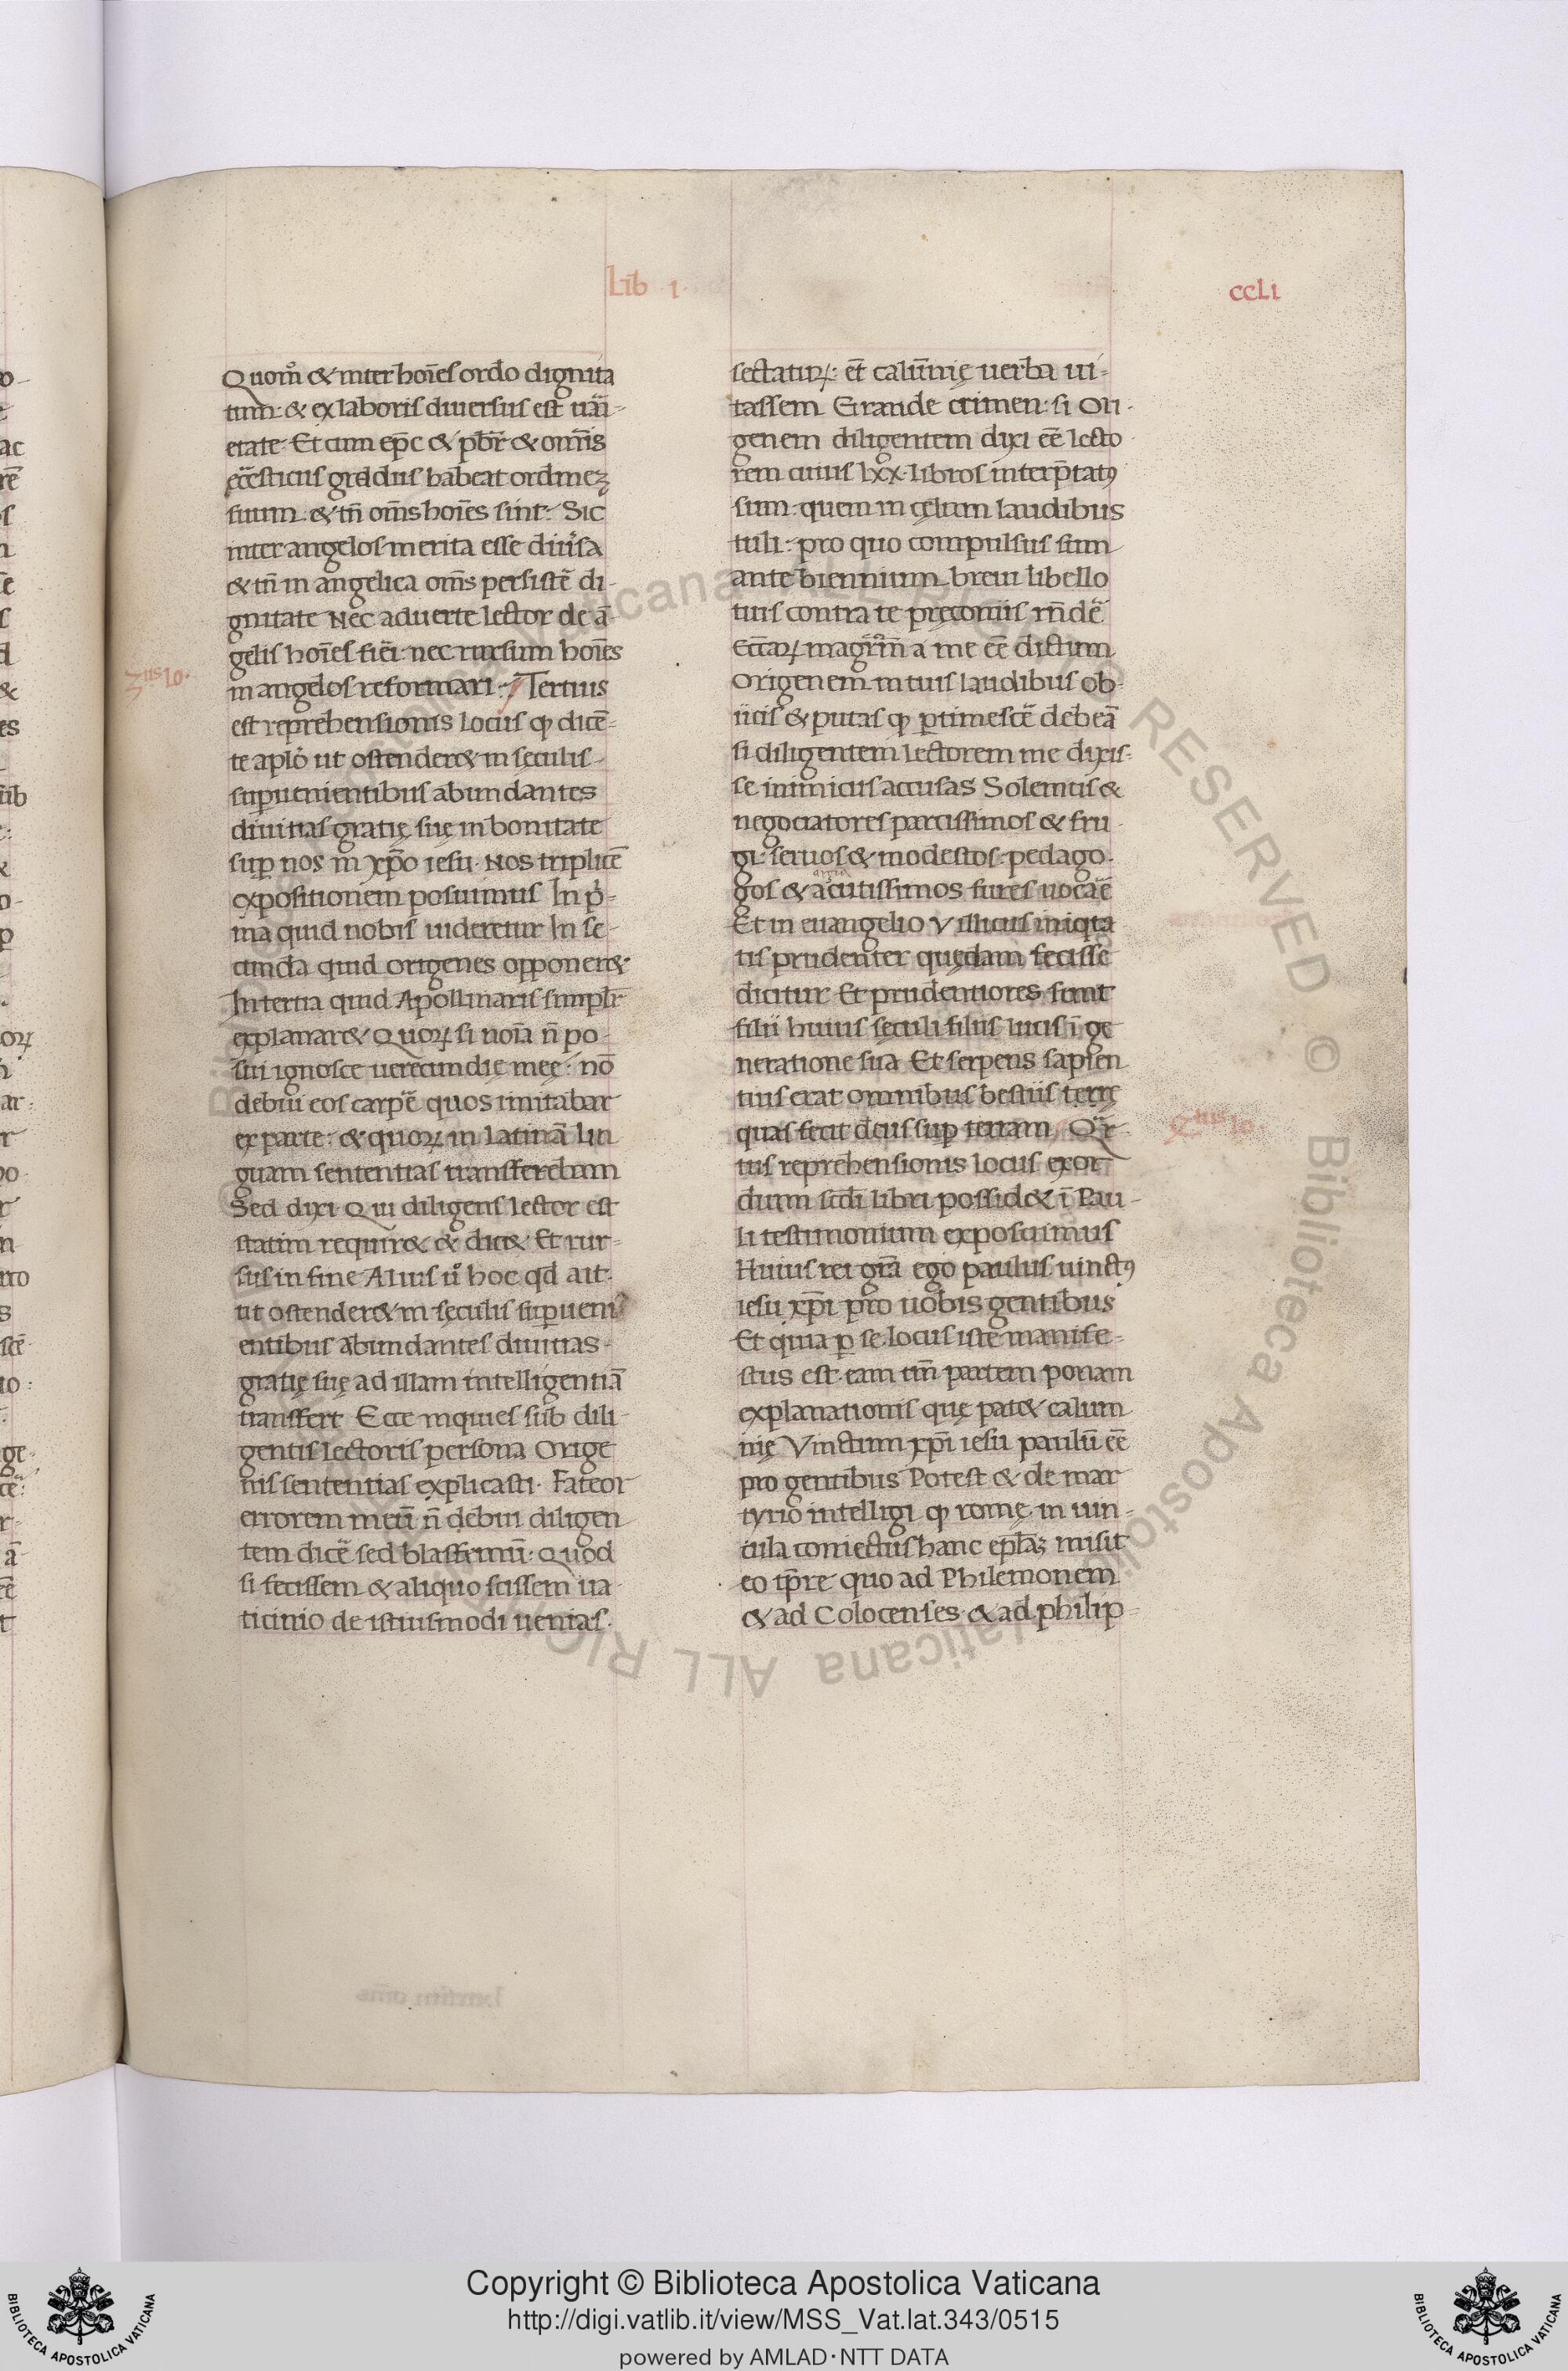 Lib̄ · i ·
ccLi
Quom̊ & inter hoīes ordo dignita
tum: & ex laboris diuersus est uari-
etate· Et cum ep̄c & pb̄r & om̄is
ęcc̄esticus gradus habeat ordinez
suum & tn̄ om̄s hoīes sint: Sic
inter angelos merita esse diūsa
& tn̄ in angelica om̄s persistē di-
gnitate Nec aduerte lector de ā-
gelis hoīes fiēi: nec rursum hoīes
3us lo·
in angelos reformari: Tertius
est reprehensionis Locus ꝙ dicē-
te aplo ut ostender& in seculis-
sup̱uenientibus abundantes
diuitias gratię suę in bonitate
sup̱ nos in xp̄o iesu· Nos triplicē
expositionem posuimus In p̍-
ma quid nobis uideretur In se-
cunda quid origenes opponer&·
In tertia quid Apollinaris simplr̄
explanar& Quoꝝ si noīa n̄ po-
sui ignosce uerecundię meę: nō
debui eos carpē quos imitabar
ex parte: & quoꝝ in latinā lin
guam sententias transferebam
Sed dixi Qui diligens lector est
statim requir& & dic& Et rur-
sus in fine Alius u̍ hoc qd ait·
ut ostender& in sęculis sup̱ueni
entibus abundantes diuitias-
gratię suę ad illam intelligentiā
transfert Ecce inquies sub dili-
gentis lectoris persona Orige
nis sententias explicasti· Fateor
errorem meū n̄ debui diligen
tem dicē sed blasfemū: Quod
si fecissem & aliquo scissem ua-
ticinio de istiusmodi uenias·
sectaturꝝ: et̄ calūnię uerba ui-
tassem Grande crimen: si Ori-
genem diligentem dixi eē̄ lecto
rem cuius lxx· libros interp̄tatꝰ
sum: quem in cęlum laudibus
tuli: pro quo compulsus sum
ante biennium breui libello
tuis contra te pręconiis rn̄dē
Ecc̄aꝝ magr̄m̄ a me eē dictum
Origenem in tuis laudibus ob-
iicis & putas ꝙ p̱timescē debeā
si diligentem lectorem me dixis-
se inimicus accusas Solemus &
negociatores parcissimos & fru
gi: seruos & modestos: pedago-
gos & acutissimos fures uocaē
Et in euangelio Villicus iniqta
tis prudenter quędam fecisse
dicitur Et prudentiores sunt
filii huius sęculi filiis lucis ī ge
neratione sua Et serpens sapien
tius erat omnibus bestiis terrę
quas fecit deus sup̱ terram Qr̄
4us lo·
tus reprehensionis Locus exor
dium scdi libri possid& ī Pau-
li testimonium exposuimus
Huius rei grā ego paulus uinctꝰ
iesu xp̄i pro uobis gentibus
Et quia p̱ se locus iste manife-
stus est eam tm̄ partem ponam
explanationis quę pat& calum
nię Vinctum xp̄i iesu paulū eē
pro gentibus Potest & de mar
tyrio intelligi ꝙ romę in uin-
cula coniectus hanc ep̄lāz misit
eo tp̄re quo ad Philemonem
& ad Colocenses & ad philip-
Copyright © Biblioteca Apostolica Vaticana
http://digi.vatlib.it/view/MSS_Vat.lat.343/0515
powered by AMLAD·NTT DATA